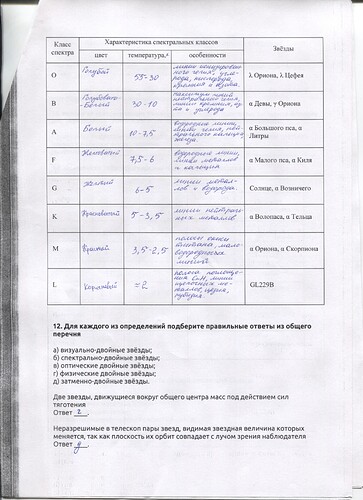 Класс спектра
Характеристика спектральных классов
Звёзды
цвет
температура,°
особенности
O
Голубой
55-30
линии ионизированного гелия, углерода, кислорода, кремния и азота
λ Ориона, λ Цефея
B
Голубовато-белый
30-10
нейтрального гелия, линии кремния,
α Девы, γ Ориона
A
Белый
10-7,5
водородные линии,
α Большого пса, α Литры
F
Желтоватый
7,5-6
водородные линии, линии металлов и кальция
α Малого пса, α Киля
G
Желтый
6-5
линии металлов и водорода
Солнце, α Возничего
K
5-3,5
линии нейтральных металлов
α Волопаса, α Тельца
M
Красный
3,5-2,5
полосы окиси титана,
α Ориона, α Скорпиона
L
Коричневый
≈2
полосы поглощения CrH, линии щелочных металлов, цезия, рубидия
GL229B
12. Для каждого из определений подберите правильные ответы из общего
перечня
а) визуально-двойные звёзды;
б) спектрально-двойные звёзды;
в) оптические двойные звёзды;
г) физические двойные звёзды;
д) затменно-двойные звёзды.
Две звезды, движущиеся вокруг общего центра масс под действием сил
тяготения
Ответ г .
Неразрешимые в телескоп пары звезд, видимая звездная величина которых
меняется, так как плоскость их орбит совпадает с лучом зрения наблюдателя
Ответ д .